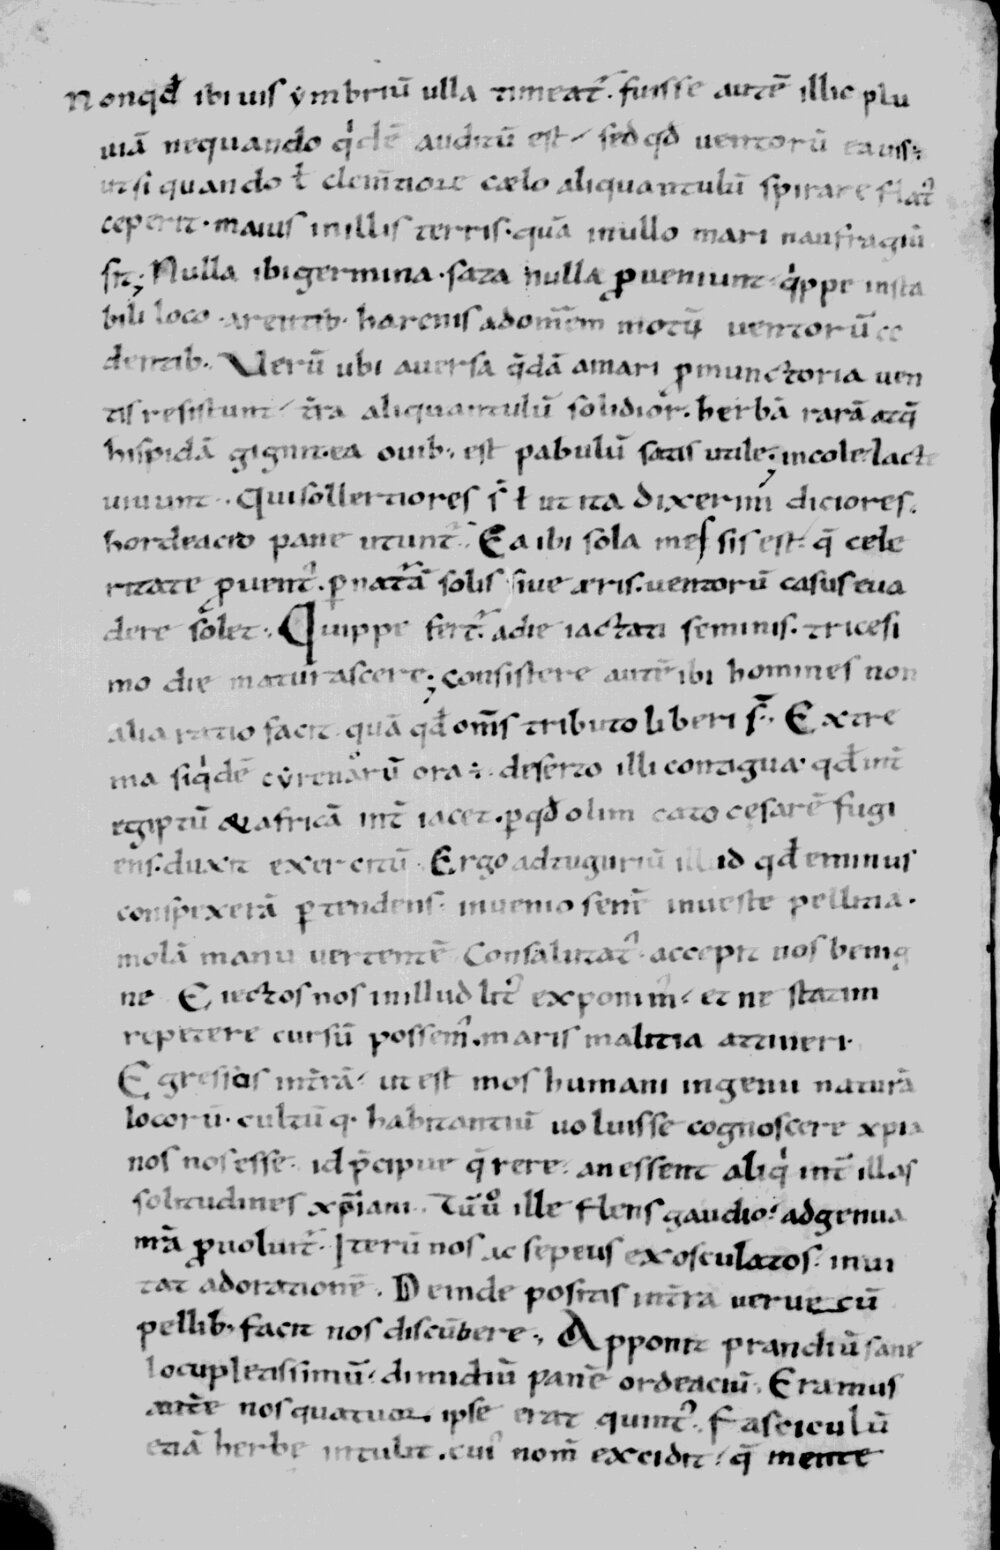 Nonqđ ibi uis ymbriū ulla timeat᷑. fuisse autē illic plu
uiā nequando qͥdē auditū est / sed qđ uentorū ea uis÷
ut si quando ł clem̄tiore cælo aliquantulū spirare flat᷒
ceperit · maius inillis terris · quā inullo mari naufragiū
sit; Nulla ibigermina · sata nulla ꝓueniunt · qͥppe insta
bili loco · arentib· harenis adom̄em motū uentorū ce
dentib·. Uerū ubi auersa q̄dā amari ꝓmunctoria uen
tis resistunt / t̄ra aliquantulū solidior᷒. herbā rarā atq̄
hispidā gignit · ea ouib·, est pabulū satis utile; incole lacte
uiuunt ·. Qui sollertiores s̄ ł ut ita dixerim diciores.
hordeacio pane utunt᷑. Ea ibi sola messis est · q̄ cele
ritate ꝓuent᷒. ꝑ natam̄ solis siue æris . uentorū casus eua
dere solet ·. Quippe fert᷑ adie iactati seminis . tricesi
mo die maturascere; consistere autē ibi homines non
alia ratio facit quā qđ om̄s tributo liberi s̄ ·. Extre
ma siqͥdē cyrenarū ora ÷ . deserto illi contigua · qđ int̄
egiptū & africā int̄ iacet . ꝑ qđ olim cato cęsarē fugi
ens . duxit exercitū . Ergo adtuguriū illud qđ eminus
conspexerā ꝑtendens · inuenio senē inueste pellitia ·
molā manu uertentē Consalutat᷒ . accepit nos benig
ne Eiectos nos inillud lit᷒ exponim᷒ / et ne statim
repetere cursū possem᷒ . maris malitia attineri ·
Egressis int̄rā / ut est mos humani ingenii naturā
locorū · cultūq· habitantiū uoluisse cognoscere xpia
nos nos esse . id p̄cipue q̄rere . an essent aliqͥ int̄ illas
solitudines xp̄iani . Tū uͦ ille flens gaudio . adgenua
nr̄a ꝓuoluit᷑ . Iterū nos ac sepeius exosculatos . inui
tat adorationē . Deinde positis int̄ra uerue cū
pellib· facit nos discūbere ·, Apponit prandiū sane
locupletissimū / dimidiū panē ordeaciū . Eramus
autē nos quatuor, ipse erat quint᷒ . Fasciculū
etiā herbe intulit . cui᷒ nom̄ excidit / q̄ mente